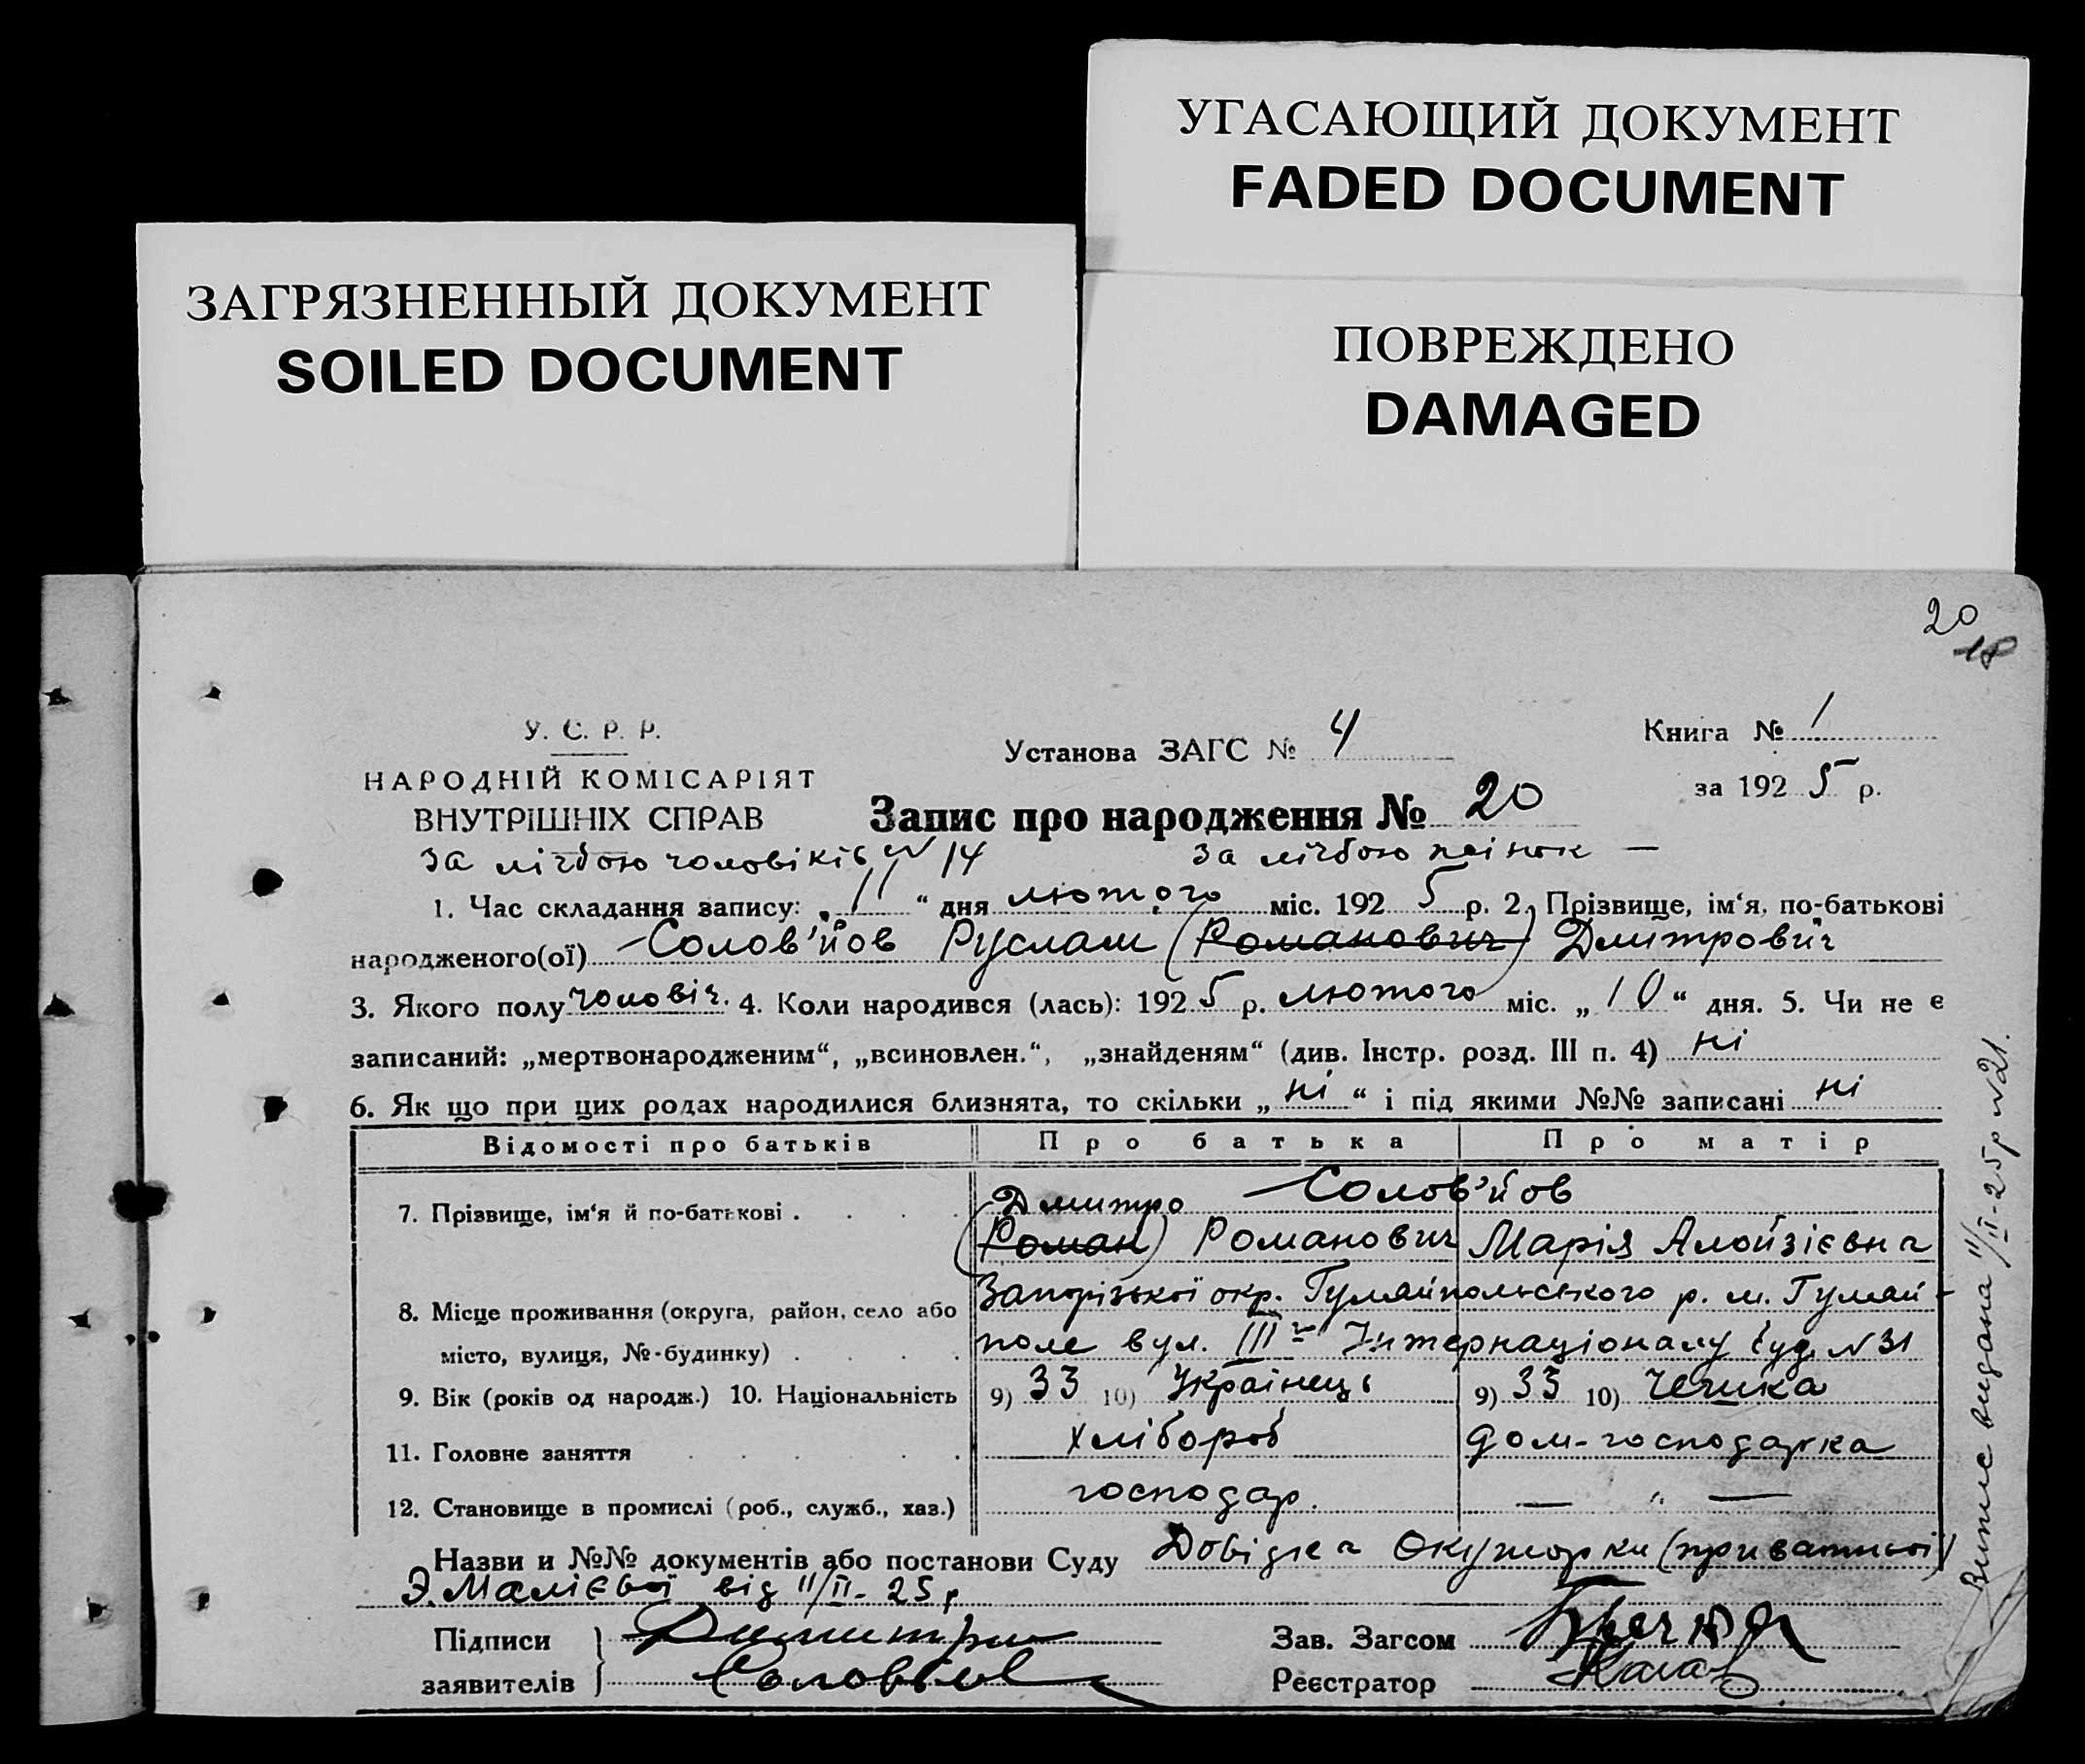 УГАСАЮЩИЙ ДОКУМЕНТ
FADED DOCUMENT
ЗАГРЯЗНЕННЫЙ ДОКУМЕНТ
SOILED DOCUMENT
ПОВРЕЖДЕНО
DAMAGED
20
18
У. С. Р. Р.
НАРОДНІЙ КОМІСАРІЯТ
ВНУТРІШНІХ СПРАВ
Установа ЗАГС № 4
Книга № 1
за 1925 р.
Запис про народження № 20
За лічбою чоловіків № 14 За лічбою жінок —
1. Час складання запису: „11“ дня лютого міс. 1925 р. 2. Прізвище, ім'я, по-батькові
народженого(ої) Солов'йов Руслан (Романович) Дмитрович
3. Якого полу чоловіч. 4. Коли народився (лась): 1925 р. лютого міс. „10“ дня. 5. Чи не є
записаний: „мертвонародженим“, „всиновлен.“, „знайденям“ (див. Інстр. розд. III п. 4) ні
6. Як що при цих родах народилися близнята, то скільки „ні“ і під якими №№ записані ні
Відомості про батьків Про батька Про матір
7. Прізвище, ім'я й по-батькові . Дмитро Солов'йов
(Роман) Романович Марія Алойзієвна
8. Місце проживання (округа, район, село або Запорізької окр. Гуляйпольського р. м. Гуляй-
місто, вулиця, №-будинку) . поле вул. III го Інтернаціоналу буд. №31
9. Вік (років од народж.) 10. Національність 9) 33 10) Українець 9) 33 10) Чешка
11. Головне заняття хлібороб дом-господарка
12. Становище в промислі (роб., служб., хаз.) господар. — „ —
Назви и №№ документів або постанови Суду Довідка Окушорки (приватної)
Э. Малієвої від 11/II-25 р
Підписи заявителів Димитри
Соловьев
Зав. Загсом
Реєстратор
Витис видана 11/II-25р №21.